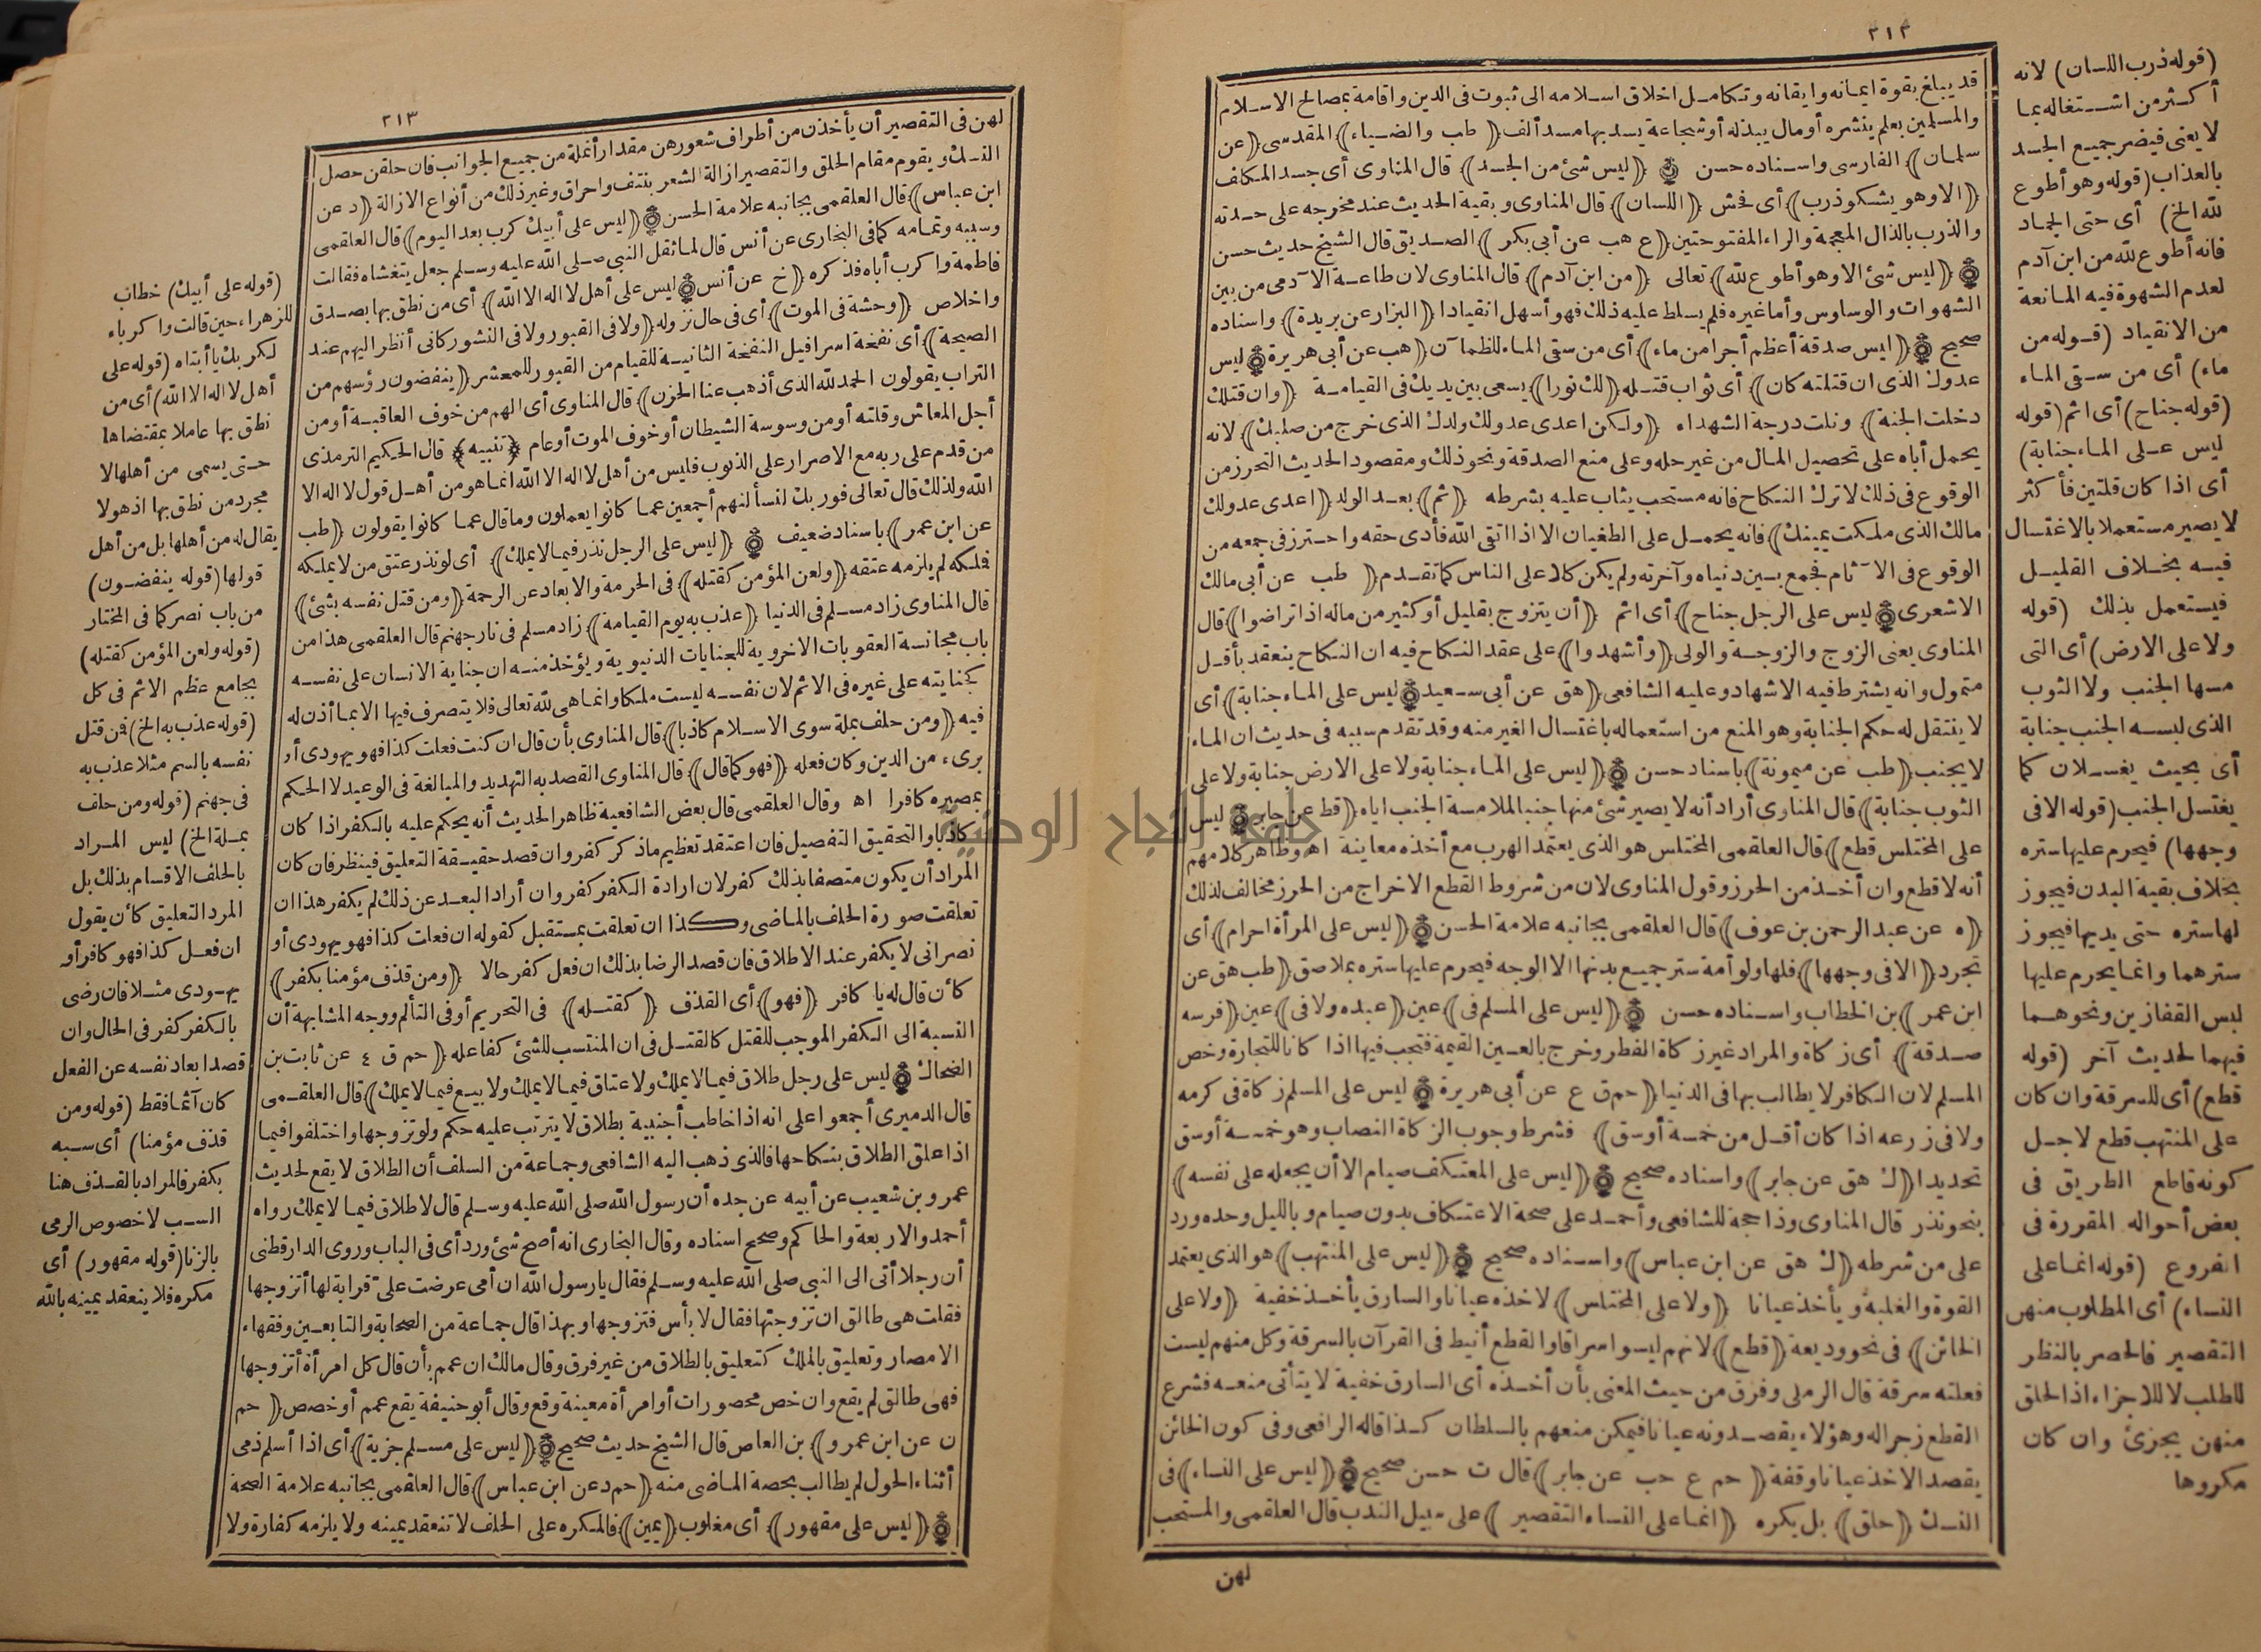 ٢١٢
قد يبلغ بقوة ايمانه وايقانه وتكامل اخلاق اسلامه الى ثبوت فى الدين واقامة بمصالح الاسلام
والمسلمين بعلم ينشره أو مال يبذله أو شجاعة يسد بها مسد ألف ﴿طب والضياء﴾ المقدسى ﴿عن
سلمان﴾ الفارسى واسناده حسن ﴿ليس شئ من الجسد﴾ قال المناوى أى جسد المكلف
﴿الا وهو يشكو ذرب﴾ أى فحش ﴿اللسان﴾ قال المناوى وبقية الحديث عند مخرجه على حدته
والذرب بالذال المعجمة والراء المفتوحتين ﴿ع هب عن أبى بكر﴾ الصديق قال الشيخ حديث حسن
﴿ليس شئ الا وهو أطوع لله﴾ تعالى ﴿من ابن آدم﴾ قال المناوى لان طاعة الآدمى من بين
الشهوات والوساوس وأما غيره فلم يسلط عليه ذلك فهو أسهل انقيادا ﴿البزار عن بريدة﴾ واسناده
صحيح ﴿ليس صدقة أعظم أجرا من ماء﴾ أى من سقى الماء للظمآن ﴿هب عن أبى هريرة﴾ ليس
عدوك الذى ان قتلته كان﴾ أى ثواب قتله ﴿لك نورا﴾ يسعى بين يديك فى القيامة ﴿وان قتلك
دخلت الجنة﴾ ونلت درجة الشهداء ﴿ولكن اعدى عدولك ولدك الذى خرج من صلبك﴾ لانه
يحمل أباه على تحصيل المال من غير حله وعلى منع الصدقة ونحو ذلك ومقصود الحديث التحرز من
الوقوع فى ذلك لا ترك النكاح فانه مستحب يثاب عليه بشرطه ﴿ثم﴾ بعد الولد ﴿اعدى عدولك
مالك الذى ملكت يمينك﴾ فانه يحمل على الطغيان الا اذا اتقى الله فأدى حقه واحترز فى جمعه من
الوقوع فى الآثام فجمع بين دنياه وآخرته ولم يكن كلا على الناس كما تقدم ﴿طب عن أبى مالك
الاشعرى﴾ ليس على الرجل جناح﴾ أى اثم ﴿أن يتزوج بقليل أو كثير من ماله اذا تراضوا﴾ قال
المناوى يعنى الزوج والزوجة والولى ﴿وأشهدوا﴾ على عقد النكاح فيه ان النكاح ينعقد بأقل
متمول وانه يشترط فيه الاشهاد وعليه الشافعى ﴿هق عن أبى سعيد﴾ ليس على الماء جنابة﴾ أى
لا ينتقل له حكم الجنابة وهو المنع من استعماله باغتسال الغير منه وقد تقدم سببه فى حديث ان الماء
لا يجنب ﴿طب عن ميمونة﴾ باسناد حسن ﴿ليس على الماء جنابة ولا على الارض جنابة ولا على
الثوب جنابة﴾ قال المناوى أراد أنه لا يصير شئ منها جنبا لملامسة الجنب اياه ﴿قط عن جابر﴾ ليس
على المختلس قطع﴾ قال العلقمى المختلس هو الذى يعتمد الهرب مع أخذه معاينة اه وظاهر كلامهم
أنه لا قطع وان أخذ من الحرز وقول المناوى لان من شروط القطع الاخراج من الحرز مخالف لذلك
﴿ه عن عبد الرحمن بن عوف﴾ قال العلقمى بجانبه علامة الحسن ﴿ليس على المرأة احرام﴾ أى
تجرد ﴿الا فى وجهها﴾ فلها ولو أمة ستر جميع بدنها الا الوجه فيحرم عليها ستره بملاصق ﴿طب هق عن
ابن عمر﴾ بن الخطاب واسناده حسن ﴿ليس على المسلم فى﴾ عين ﴿عبده ولا فى﴾ عين ﴿فرسه
صدقة﴾ أى زكاة والمراد غير زكاة الفطر وخرج بالعين القيمة فتجب فيها اذا كانا للتجارة وخص
المسلم لان الكافر لا يطالب بها فى الدنيا ﴿حم ق ع عن أبى هريرة﴾ ليس على المسلم زكاة فى كرمه
ولا فى زرعه اذا كان أقل من خمسة أوسق﴾ فشرط وجوب الزكاة النصاب وهو خمسة أوسق
تحديدا ﴿ك هق عن جابر﴾ واسناده صحيح ﴿ليس على المعتكف صيام الا أن يجعله على نفسه﴾
بنحو نذر قال المناوى وذا حجة للشافعى وأحمد على صحة الاعتكاف بدون صيام وبالليل وحده ورد
على من شرطه ﴿ك هق عن ابن عباس﴾ واسناده صحيح ﴿ليس على المنتهب﴾ هو الذى يعتمد
القوة والغلبة ويأخذ عيانا ﴿ولا على المختلس﴾ لاخذه عيانا والسارق يأخذ خفية ﴿ولا على
الخائن﴾ فى نحو وديعة ﴿قطع﴾ لانهم ليسوا سراقا والقطع أنيط فى القرآن بالسرقة وكل منهم ليست
فعلته سرقة قال الرملى وفرق من حيث المعنى بأن أخذه أى السارق خفية لا يتأتى منعه فشرع
القطع زجرا له وهؤلاء يقصدونه عيانا فيمكن منعهم بالسلطان كذا قاله الرافعى وفى كون الخائن
يقصد الاخذ عيانا وقفة ﴿حم ع حب عن جابر﴾ قال ت حسن صحيح ﴿ليس على النساء﴾ فى
النسك ﴿حلق﴾ بل يكره ﴿انما على النساء التقصير﴾ على سبيل الندب قال العلقمى والمستحب
لهن
(قوله ذرب اللسان) لانه
أكثر من اشتغاله بما
لا يعنى فيضر جميع الجسد
بالعذاب (قوله وهو أطوع
لله الخ) أى حتى الجماد
فانه أطوع لله من ابن آدم
لعدم الشهوة فيه المانعة
من الانقياد (قوله من
ماء) أى من سقى الماء
(قوله جناح) أى اثم (قوله
ليس على الماء جنابة)
أى اذا كان قلتين فأكثر
لا يصير مستعملا بالاغتسال
فيه بخلاف القليل
فيستعمل بذلك (قوله
ولا على الارض) أى التى
مسها الجنب ولا الثوب
الذى لبسه الجنب جنابة
أى بحيث يغسلان كما
يغتسل الجنب (قوله الا فى
وجهها) فيحرم عليها ستره
بخلاف بقية البدن فيجوز
لها ستره حتى يديها فيجوز
سترهما وانما يحرم عليها
لبس القفازين ونحوهما
فيهما لحديث آخر (قوله
قطع) أى للسرقة وان كان
على المنتهب قطع لاجل
كونه قاطع الطريق فى
بعض أحواله المقررة فى
الفروع (قوله انما على
النساء) أى المطلوب منهن
التقصير فالحصر بالنظر
للطلب لا للاجزاء اذا الحلق
منهن يجزئ وان كان
مكروها
٢١٣
لهن فى التقصير أن يأخذن من أطراف شعورهن مقدار أنملة من جميع الجوانب فان حلقن حصل
النسك ويقوم مقام الحلق والتقصير ازالة الشعر بنتف واحراق وغير ذلك من أنواع الازالة ﴿د عن
ابن عباس﴾ قال العلقمى بجانبه علامة الحسن ﴿ليس على أبيك كرب بعد اليوم﴾ قال العلقمى
وسببه وتمامه كما فى البخارى عن أنس قال لما ثقل النبى صلى الله عليه وسلم جعل يتغشاه فقالت
فاطمة واكرب أباه فذكره ﴿خ عن أنس﴾ ليس على أهل لا اله الا الله﴾ أى من نطق بها بصدق
واخلاص ﴿وحشة فى الموت﴾ أى فى حال نزوله ﴿ولا فى القبور ولا فى النشور كانى أنظر اليهم عند
الصيحة﴾ أى نفخة اسرافيل النفخة الثانية للقيام من القبور للمحشر ﴿ينفضون رؤسهم من
التراب يقولون الحمد لله الذى أذهب عنا الحزن﴾ قال المناوى أى الهم من خوف العاقبة أو من
أجل المعاش وقلته أو من وسوسة الشيطان أو خوف الموت أو عام ﴿تنبيه﴾ قال الحكيم الترمذى
من قدم على ربه مع الاصرار على الذنوب فليس من أهل لا اله الا الله انما هو من أهل قول لا اله الا
الله ولذلك قال تعالى فوربك لنسألنهم أجمعين عما كانوا يعملون وما قال عما كانوا يقولون ﴿طب
عن ابن عمر﴾ باسناد ضعيف ﴿ليس على الرجل نذر فيما لا يملك﴾ أى لو نذر عتق من لا يملكه
فلكه لم يلزمه عتقه ﴿ولعن المؤمن كقتله﴾ فى الحرمة والابعاد عن الرحمة ﴿ومن قتل نفسه بشئ﴾
قال المناوى زاد مسلم فى الدنيا ﴿عذب به يوم القيامة﴾ زاد مسلم فى نار جهنم قال العلقمى هذا من
باب مجانسة العقوبات الاخروية للجنايات الدنيوية ويؤخذ منه ان جناية الانسان على نفسه
كجنايته على غيره فى الاثم لان نفسه ليست ملكا وانما هى لله تعالى فلا يتصرف فيها الا بما أذن له
فيه ﴿ومن حلف بملة سوى الاسلام كاذبا﴾ قال المناوى بأن قال ان كنت فعلت كذا فهو يهودى أو
برىء من الدين وكان فعله ﴿فهو كما قال﴾ قال المناوى القصد به التهديد والمبالغة فى الوعيد لا الحكم
بمصيره كافرا اه وقال العلقمى قال بعض الشافعية ظاهر الحديث أنه يحكم عليه بالكفر اذا كان
كاذبا والتحقيق التفصيل فان اعتقد تعظيم ماذكر كفر وان قصد حقيقة التعليق فينظر فان كان
المراد أن يكون متصفا بذلك كفر لان ارادة الكفر كفر وان أراد البعد عن ذلك لم يكفر هذا ان
تعلقت صورة الحلف بالماضى وكذا ان تعلقت بمستقبل كقوله ان فعلت كذا فهو يهودى أو
نصرانى لا يكفر عند الاطلاق فان قصد الرضا بذلك ان فعل كفر حالا ﴿ومن قذف مؤمنا بكفر﴾
كأن قال له يا كافر ﴿فهو﴾ أى القذف ﴿كقتله﴾ فى التحريم أو فى التألم ووجه المشابهة أن
النسبة الى الكفر الموجب للقتل كالقتل فى ان المنتسب للشئ كفاعله ﴿حم ق ٤ عن ثابت بن
الضحاك﴾ ليس على رجل طلاق فيما لا يملك ولا عتاق فيما لا يملك ولا بيع فيما لا يملك﴾ قال العلقمى
قال الدميرى أجمعوا على انه اذا خاطب أجنبية بطلاق لا يترتب عليه حكم ولو تزوجها واختلفوا فيما
اذا علق الطلاق بنكاحها فالذى ذهب اليه الشافعى وجماعة من السلف أن الطلاق لا يقع لحديث
عمرو بن شعيب عن أبيه عن جده أن رسول الله صلى الله عليه وسلم قال لا طلاق فيما لا يملك رواه
أحمد والاربعة والحاكم وصحح اسناده وقال البخارى انه أصح شئ ورد أى فى الباب وروى الدارقطنى
أن رجلا أتى الى النبى صلى الله عليه وسلم فقال يا رسول الله ان أمى عرضت علىّ قرابة لها أتزوجها
فقلت هى طالق ان تزوجتها فقال لا بأس فتزوجها وبهذا قال جماعة من الصحابة والتابعين وفقهاء
الامصار وتعليق بالملك كتعليق بالطلاق من غير فرق وقال مالك ان عمم بأن قال كل امرأة أتزوجها
فهى طالق لم يقع وان خص محصورات أو امرأة معينة وقع وقال أبو حنيفة يقع عمم أو خصص ﴿حم
ن عن ابن عمرو﴾ بن العاص قال الشيخ حديث صحيح ﴿ليس على مسلم جزية﴾ أى اذا أسلم ذمى
أثناء الحول لم يطالب بحصة الماضى منه ﴿حم د عن ابن عباس﴾ قال العلقمى بجانبه علامة الصحة
﴿ليس على مقهور﴾ أى مغلوب ﴿يمين﴾ فالمكره على الحلف لا تنعقد يمينه ولا يلزمه كفارة ولا
(قوله على أبيك) خطاب
للزهراء حين قالت واكرباه
لكربك يا أبتاه (قوله على
أهل لا اله الا الله) أى من
نطق بها عاملا بمقتضاها
حتى يسمى من أهلها لا
مجرد من نطق بها اذ هو لا
يقال له من أهلها بل من أهل
قولها (قوله ينفضون)
من باب نصر كما فى المختار
(قوله ولعن المؤمن كقتله)
بجامع عظم الاثم فى كل
(قوله عذب به الخ) فمن قتل
نفسه بالسم مثلا عذب به
فى جهنم (قوله ومن حلف
بملة الخ) ليس المراد
بالحلف الاقسام بذلك بل
المرد التعليق كأن يقول
ان فعل كذا فهو كافر أو
يهودى مثلا فان رضى
بالكفر كفر فى الحال وان
قصد ابعاد نفسه عن الفعل
كان آثما فقط (قوله ومن
قذف مؤمنا) أى سبه
بكفر فالمراد بالقذف هنا
السب لا خصوص الرمى
بالزنا (قوله مقهور) أى
مكره فلا ينعقد يمينه بالله
جامعة النجاح الوطنية